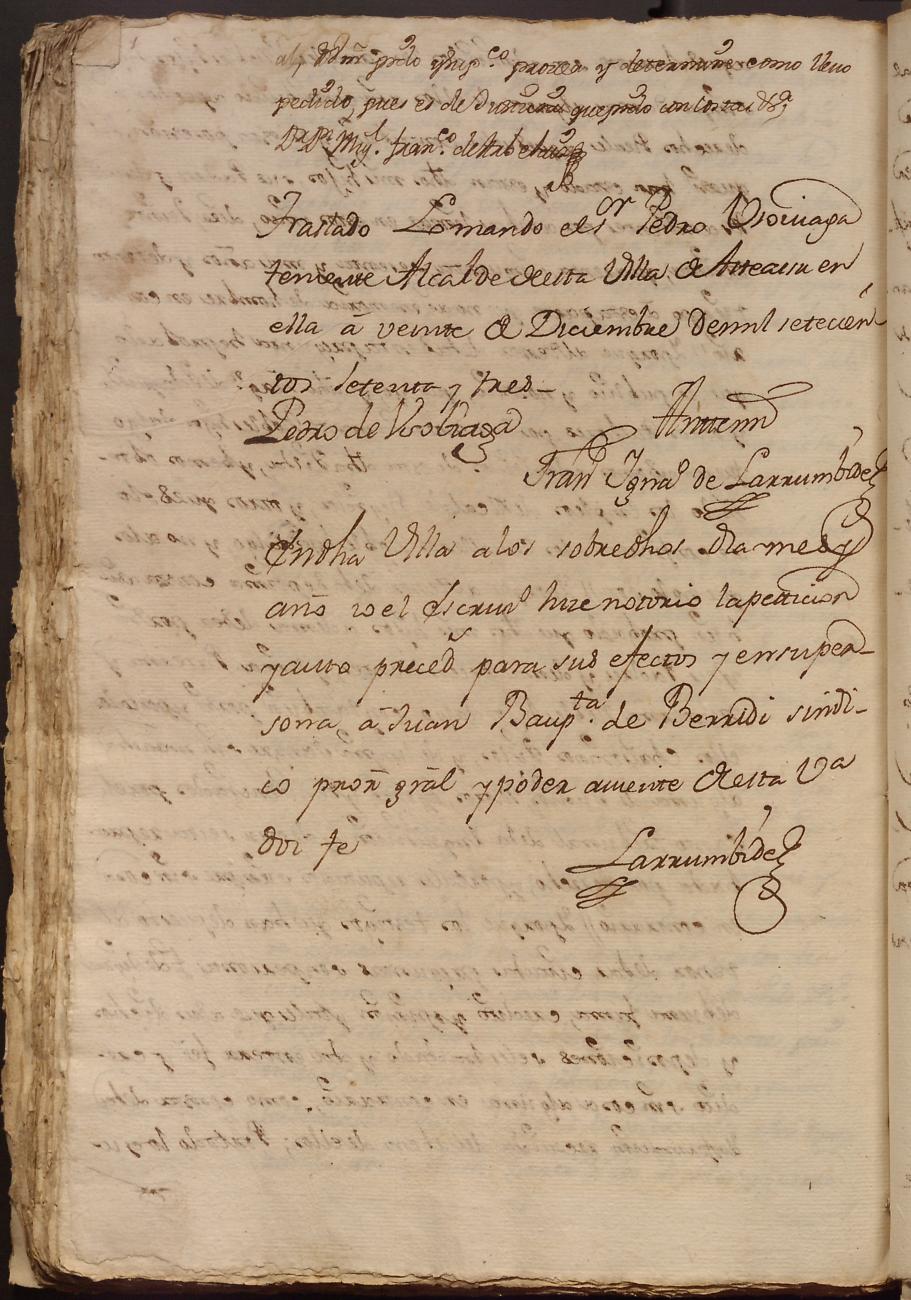 a Vm. pido y sup.co provea y determine como llevo
pedido, pues es de Justicia que pido con costas &a
Mig.l Fran.co de
Traslado Lo mando el s.or Pedro Usoviaga
teniente Alcalde de esta Villa de Arteassu en
ella â veinte de Diciembre de mil setecien
tos setenta y tres_
Pedro de Usobiaga Antemi
Fran.co Ygna.o de Larrumbide
En dha Villa a los sobredhos dia mes y
año io el Escriv.o hize notorio la peticion
y auto preced.te para sus efectos y en su per-
sona â Juan Baup.ta de Berridi sindi-
co pror gral y poder aviente de esta V.a
doi fe
Larrumbide